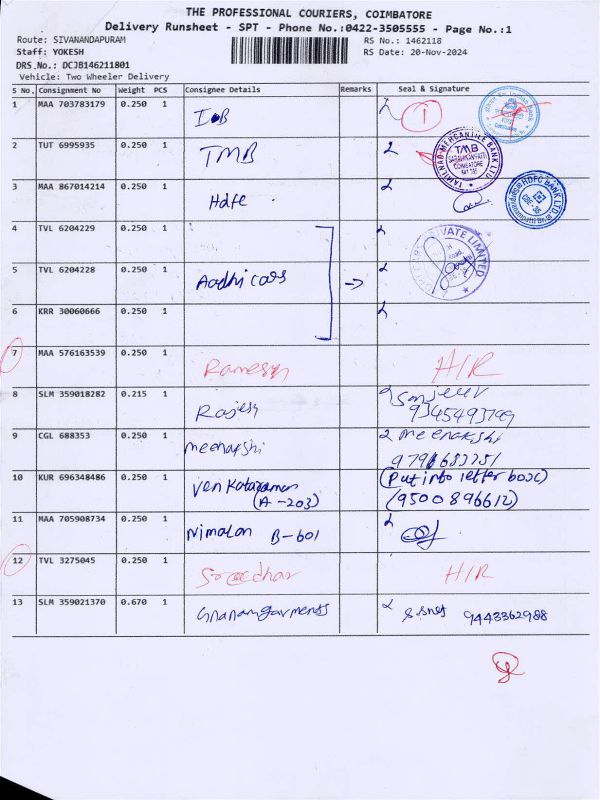 THE PROFESSIONAL COURIERS, COIMBATORE
Delivery Runsheet - SPT - Phone No.:0422-3505555 - Page No.:1
Route: SIVANANDAPURAM
RS No.: 1462118
Staff: YOKESH
RS Date: 20-Nov-2024
DRS No.: DCJB146211801
Vehicle: Two Wheeler Delivery
S No. Consignment No Weight PCS Consignee Details Remarks Seal & Signature
1 MAA 703783179 0.250 1 IOB 1
2 TUT 6995935 0.250 1 TMB TAMILNAD MERCANTILE BANK LTD TMB COIMBATORE
3 MAA 867014214 0.250 1 Hdfc HDFC BANK LTD
4 TVL 6204229 0.250 1 PRIVATE LIMITED
5 TVL 6204228 0.250 1 Aadhi cars
6 KRR 30060666 0.250 1
7 MAA 576163539 0.250 1 Ramesh H/R
8 SLM 359018282 0.215 1 Rajesh Sanjeev
9345493799
9 CGL 688353 0.250 1 meenakshi meenakshi
10 KUR 696348486 0.250 1 Venkataraman (Put into letter box)
(A-203) (9500896612)
11 MAA 705908734 0.250 1 Nimalan B-601
12 TVL 3275045 0.250 1 Sreedhar H/R
13 SLM 359021370 0.670 1 Gnanamgarments 9443362988